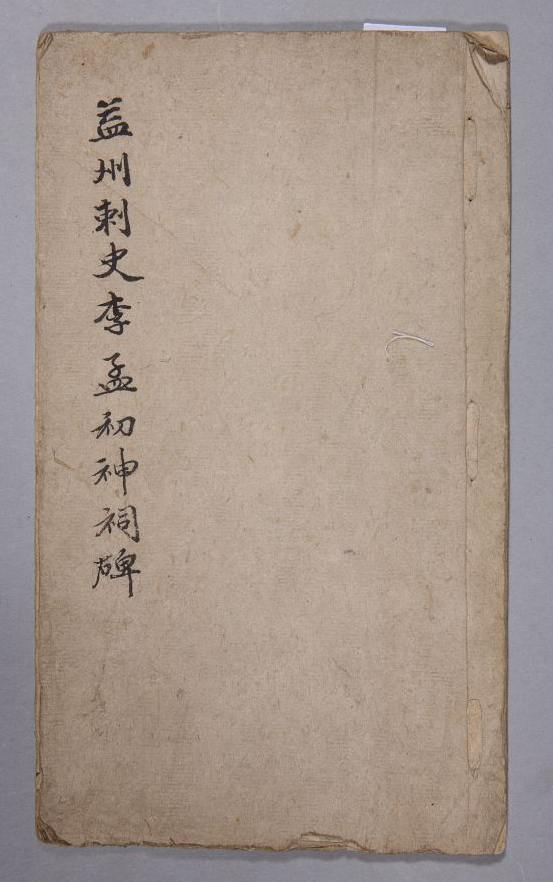 益州刺史李孟初神祠碑